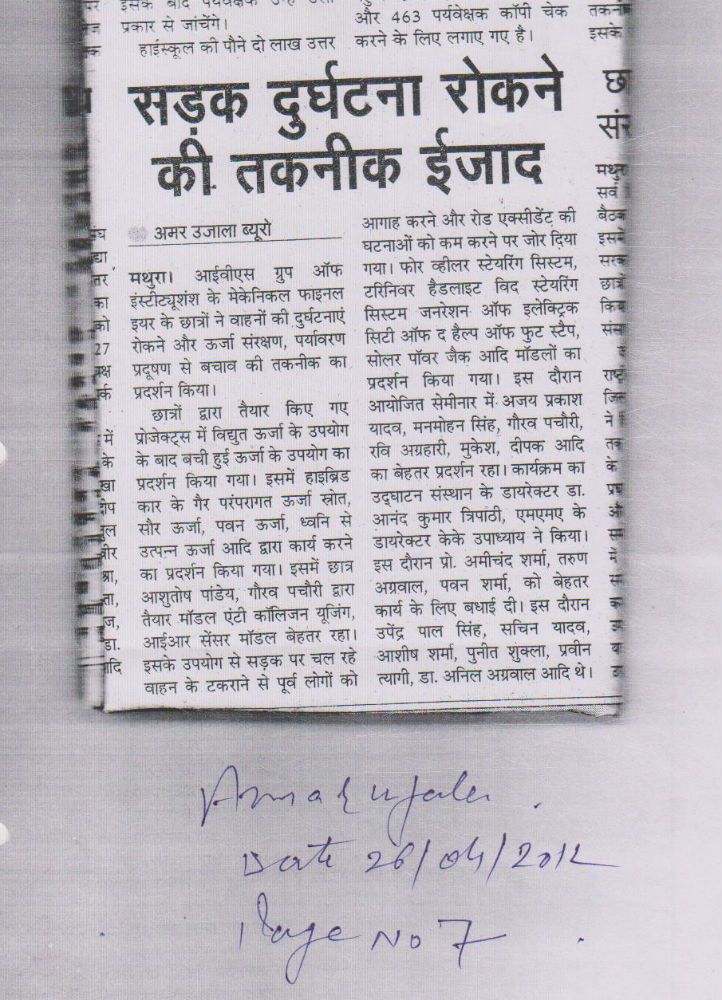 प्रकार से जांचेंगे।
हाईस्कूल की पौने दो लाख उत्तर
और 463 पर्यवेक्षक कॉपी चेक
करने के लिए लगाए गए है।
सड़क दुर्घटना रोकने
की तकनीक ईजाद
अमर उजाला ब्यूरो
मथुरा। आईवीएस ग्रुप ऑफ
इंस्टीट्यूशंश के मेकेनिकल फाइनल
इयर के छात्रों ने वाहनों की दुर्घटनाएं
रोकने और ऊर्जा संरक्षण, पर्यावरण
प्रदूषण से बचाव की तकनीक का
प्रदर्शन किया।
छात्रों द्वारा तैयार किए गए
प्रोजेक्ट्स में विद्युत ऊर्जा के उपयोग
के बाद बची हुई ऊर्जा के उपयोग का
प्रदर्शन किया गया। इसमें हाइब्रिड
कार के गैर परंपरागत ऊर्जा स्रोत,
सौर ऊर्जा, पवन ऊर्जा, ध्वनि से
उत्पन्न ऊर्जा आदि द्वारा कार्य करने
का प्रदर्शन किया गया। इसमें छात्र
आशुतोष पांडेय, गौरव पचौरी द्वारा
तैयार मॉडल एंटी कॉलिजन यूजिंग,
आईआर सेंसर मॉडल बेहतर रहा।
इसके उपयोग से सड़क पर चल रहे
वाहन के टकराने से पूर्व लोगों को
आगाह करने और रोड एक्सीडेंट की
घटनाओं को कम करने पर जोर दिया
गया। फोर व्हीलर स्टेयरिंग सिस्टम,
टरिनिवर हैडलाइट विद स्टेयरिंग
सिस्टम जनरेशन ऑफ इलेक्ट्रिक
सिटी ऑफ द हैल्प ऑफ फुट स्टैप,
सोलर पॉवर जैक आदि मॉडलों का
प्रदर्शन किया गया। इस दौरान
आयोजित सेमीनार में अजय प्रकाश
यादव, मनमोहन सिंह, गौरव पचौरी,
रवि अग्रहारी, मुकेश, दीपक आदि
का बेहतर प्रदर्शन रहा। कार्यक्रम का
उद्घाटन संस्थान के डायरेक्टर डा.
आनंद कुमार त्रिपाठी, एमएमए के
डायरेक्टर केके उपाध्याय ने किया।
इस दौरान प्रो. अमीचंद शर्मा, तरुण
अग्रवाल, पवन शर्मा, को बेहतर
कार्य के लिए बधाई दी। इस दौरान
उपेंद्र पाल सिंह, सचिन यादव,
आशीष शर्मा, पुनीत शुक्ला, प्रवीन
त्यागी, डा. अनिल अग्रवाल आदि थे।
Amar ujala
Date 26/04/2012
Page No 7